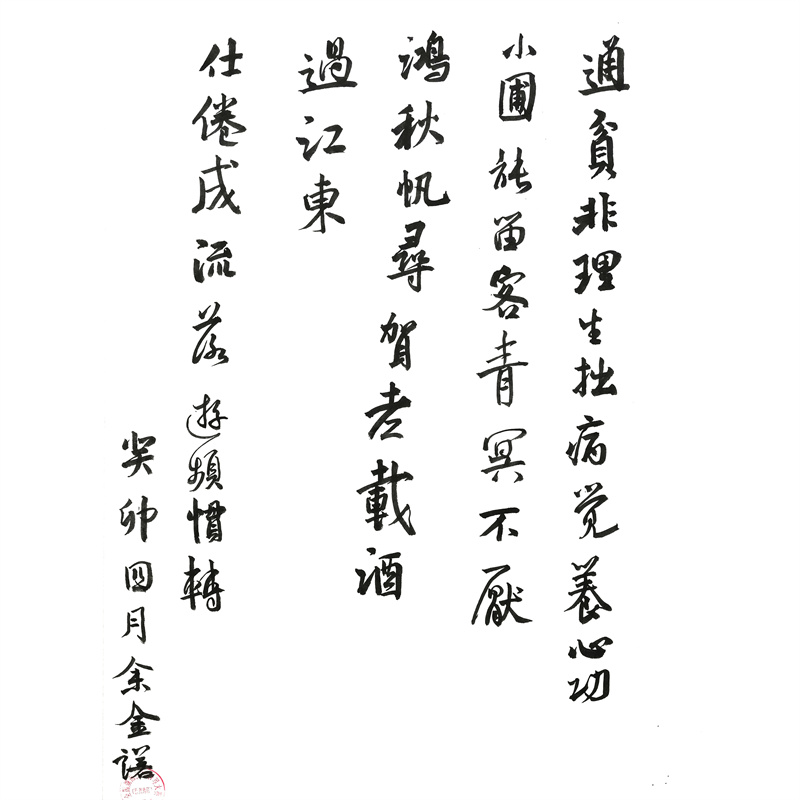 通貧非理生拙病覚養心功
小圃能留客青冥不厭
鴻秋帆尋賀老載酒
過江東
仕倦成流落遊頻慣轉
癸卯四月余金諾